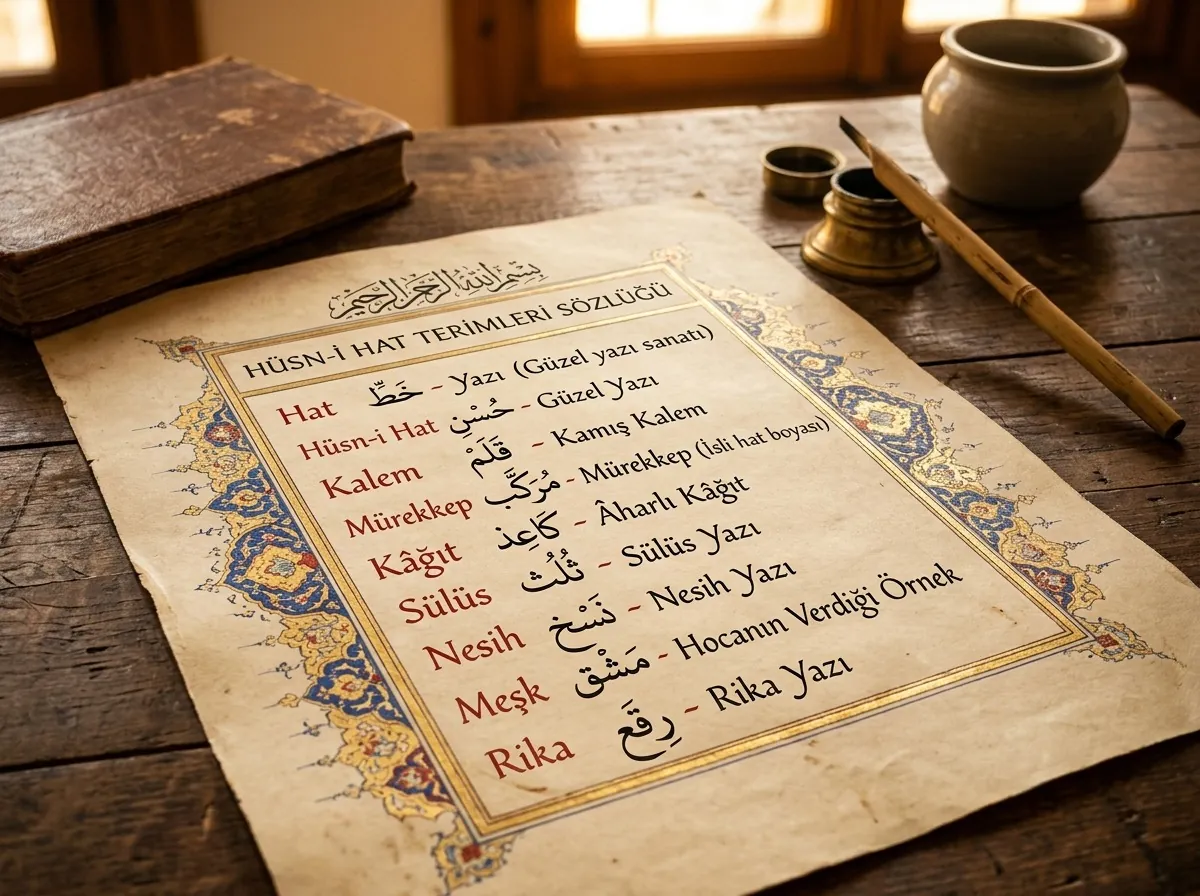 بسم الله الرحمن الرحيم
HÜSN-İ HAT TERİMLERİ SÖZLÜĞÜ
Hat خَطِّ - Yazı (Güzel yazı sanatı)
Hüsn-i Hat حُسْنِ - Güzel Yazı
Kalem قَلَمْ - Kamış Kalem
Mürekkep مُرَكَّب - Mürekkep (İsli hat boyası)
Kâğıt كَاعِذ - Âharlı Kâğıt
Sülüs ثُلُث - Sülüs Yazı
Nesih نَسْخ - Nesih Yazı
Meşk مَشْق - Hocanın Verdiği Örnek
Rika رِقَعَ - Rika Yazı